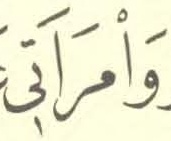 وَاْمرَاَتِي